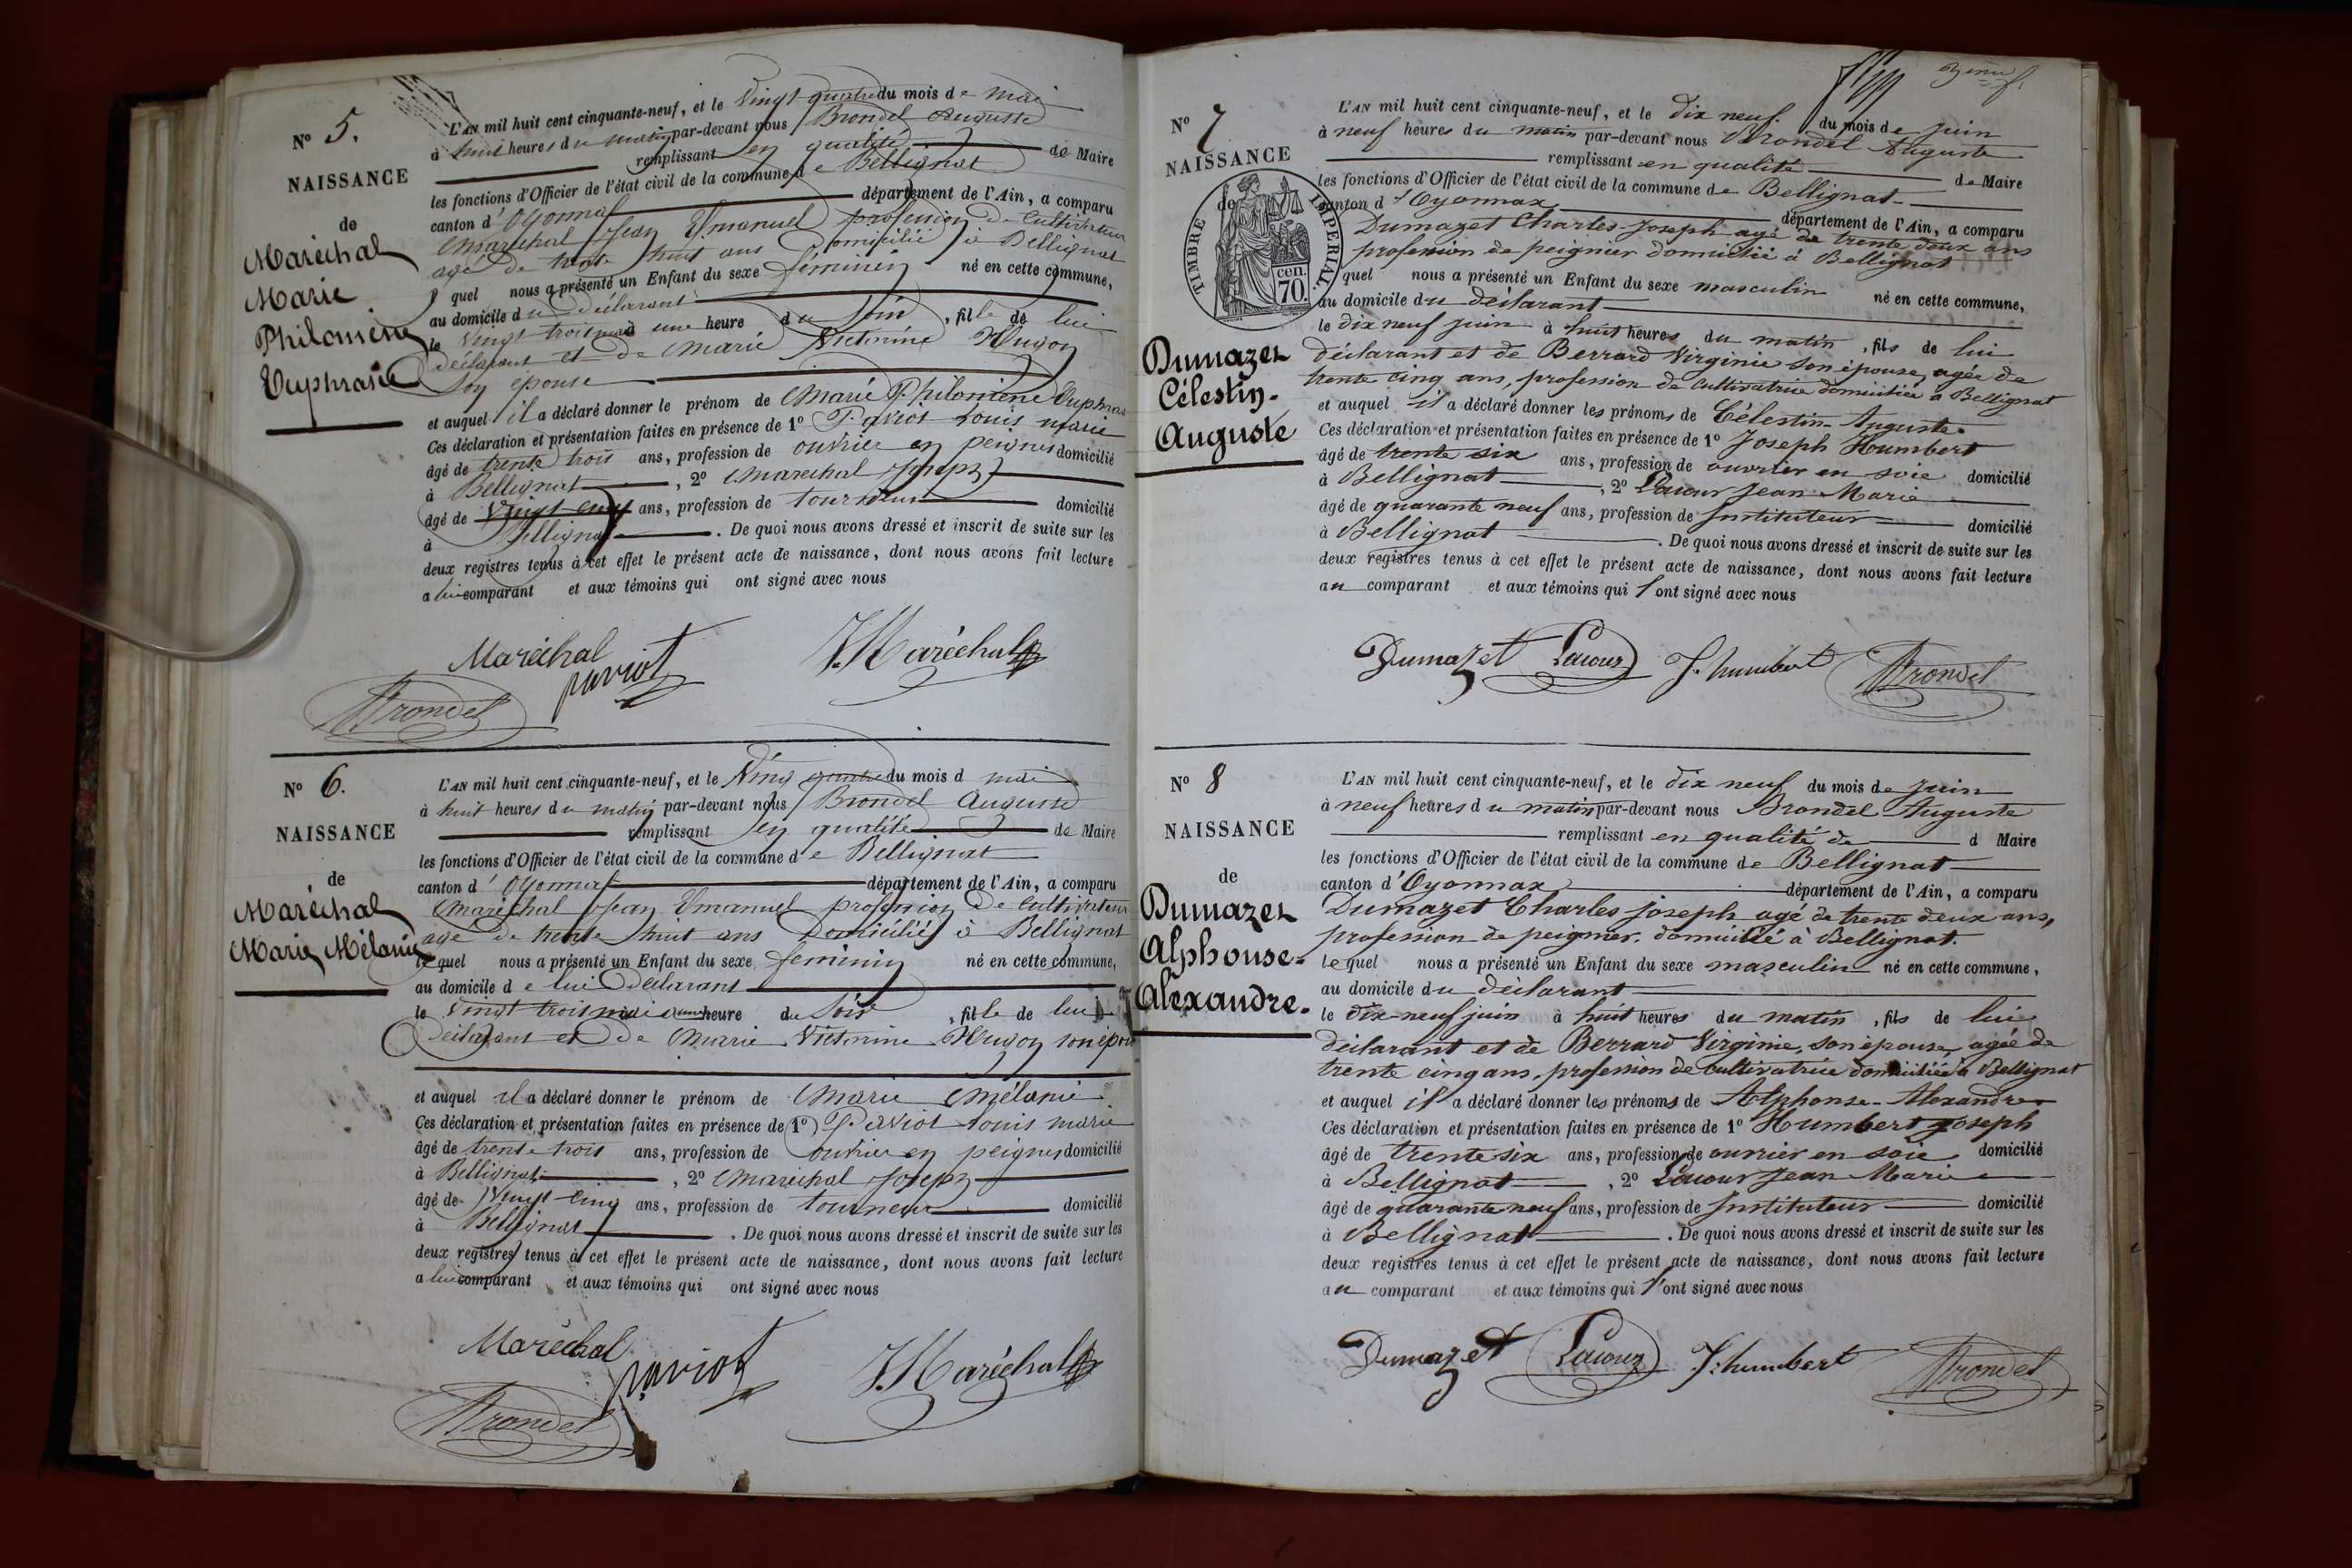 N° 5.
NAISSANCE
de
Maréchal
Marie
Philomène
Euphrasie
L'AN mil huit cent cinquante-neuf, et le Vingt quatre du mois de mai
à huit heures du matin par-devant nous Brondel Auguste
remplissant en qualité de Maire
les fonctions d'Officier de l'état civil de la commune de Bellignat
canton d'Oyonnax département de l'Ain, a comparu
Maréchal Jean Emanuel profession de Cultivateur
agé de trente huit ans domicilié à Bellignat
quel nous a présenté un Enfant du sexe féminin né en cette commune,
au domicile du déclarant
le Vingt trois mai à une heure du soir, fille de lui
déclarant et de Marie Victorine Hugon
son épouse
et auquel il a déclaré donner le prénom de Marie Philomène Euphras
Ces déclaration et présentation faites en présence de 1° Paviot Louis marie
âgé de trente trois ans, profession de ouvrier en peignes domicilié
à Bellignat, 2° Maréchal Joseph
âgé de Vingt cinq ans, profession de tourneur domicilié
à Bellignat. De quoi nous avons dressé et inscrit de suite sur les
deux registres tenus à cet effet le présent acte de naissance, dont nous avons fait lecture
a lui comparant et aux témoins qui ont signé avec nous
Maréchal paviot J. Maréchal
Brondel
N° 6.
NAISSANCE
de
Maréchal
Marie Mélanie
L'AN mil huit cent cinquante-neuf, et le Vingt quatre du mois d mai
à huit heures du matin par-devant nous Brondel Auguste
remplissant en qualité de Maire
les fonctions d'Officier de l'état civil de la commune de Bellignat
canton d'Oyonnax département de l'Ain, a comparu
Maréchal Jean Emanuel profession de Cultivateur
agé de trente huit ans domicilié à Bellignat
lequel nous a présenté un Enfant du sexe féminin né en cette commune,
au domicile de lui déclarant
le Vingt trois mai à une heure du soir, fille de lui
déclarant et de Marie Victorine Hugon son épou
et auquel il a déclaré donner le prénom de Marie Mélanie
Ces déclaration et présentation faites en présence de 1° Paviot Louis marie
âgé de trente trois ans, profession de ouvrier en peignes domicilié
à Bellignat, 2° Maréchal Joseph
âgé de Vingt cinq ans, profession de tourneur domicilié
à Bellignat. De quoi nous avons dressé et inscrit de suite sur les
deux registres tenus à cet effet le présent acte de naissance, dont nous avons fait lecture
a lui comparant et aux témoins qui ont signé avec nous
Maréchal paviot J. Maréchal
Brondel
N° 7
NAISSANCE
de
TIMBRE IMPERIAL
cen.
70.
Dumazet
Célestin-
Auguste
L'AN mil huit cent cinquante-neuf, et le dix neuf du mois de juin
à neuf heures du matin par-devant nous Brondel Auguste
remplissant en qualité de Maire
les fonctions d'Officier de l'état civil de la commune de Bellignat
canton d'Oyonnax département de l'Ain, a comparu
Dumazet Charles-Joseph agé de trente deux ans
profession de peignier domicilié à Bellignat
quel nous a présenté un Enfant du sexe masculin né en cette commune,
au domicile du déclarant
le dix neuf juin à huit heures du matin, fils de lui
déclarant et de Berrard Virginie son épouse, agée de
trente cinq ans, profession de cultivatrice domiciliée à Bellignat
et auquel il a déclaré donner les prénoms de Célestin-Auguste.
Ces déclaration et présentation faites en présence de 1° Joseph Humbert
âgé de trente six ans, profession de ouvrier en soie domicilié
à Bellignat, 2° Lacour Jean Marie
âgé de quarante neuf ans, profession de Instituteur domicilié
à Bellignat. De quoi nous avons dressé et inscrit de suite sur les
deux registres tenus à cet effet le présent acte de naissance, dont nous avons fait lecture
au comparant et aux témoins qui l'ont signé avec nous
Dumazet Lacour J. humbert Brondel
N° 8
NAISSANCE
de
Dumazet
Alphonse-
Alexandre.
L'AN mil huit cent cinquante-neuf, et le dix neuf du mois de juin
à neuf heures du matin par-devant nous Brondel Auguste
remplissant en qualité de d Maire
les fonctions d'Officier de l'état civil de la commune de Bellignat
canton d'Oyonnax département de l'Ain, a comparu
Dumazet Charles joseph agé de trente deux ans,
profession de peignier. domicilié à Bellignat.
lequel nous a présenté un Enfant du sexe masculin né en cette commune,
au domicile du déclarant
le dix-neuf juin à huit heures du matin, fils de lui
déclarant et de Berrard Virginie, son épouse, agée de
trente cinq ans, profession de cultivatrice domiciliée à Bellignat
et auquel il a déclaré donner les prénoms de Alphonse-Alexandre
Ces déclaration et présentation faites en présence de 1° Humbert Joseph
âgé de trente six ans, profession de ouvrier en soie domicilié
à Bellignat, 2° Lacour Jean Marie
âgé de quarante neuf ans, profession de Instituteur domicilié
à Bellignat. De quoi nous avons dressé et inscrit de suite sur les
deux registres tenus à cet effet le présent acte de naissance, dont nous avons fait lecture
au comparant et aux témoins qui l'ont signé avec nous
Dumazet Lacour J. humbert Brondel